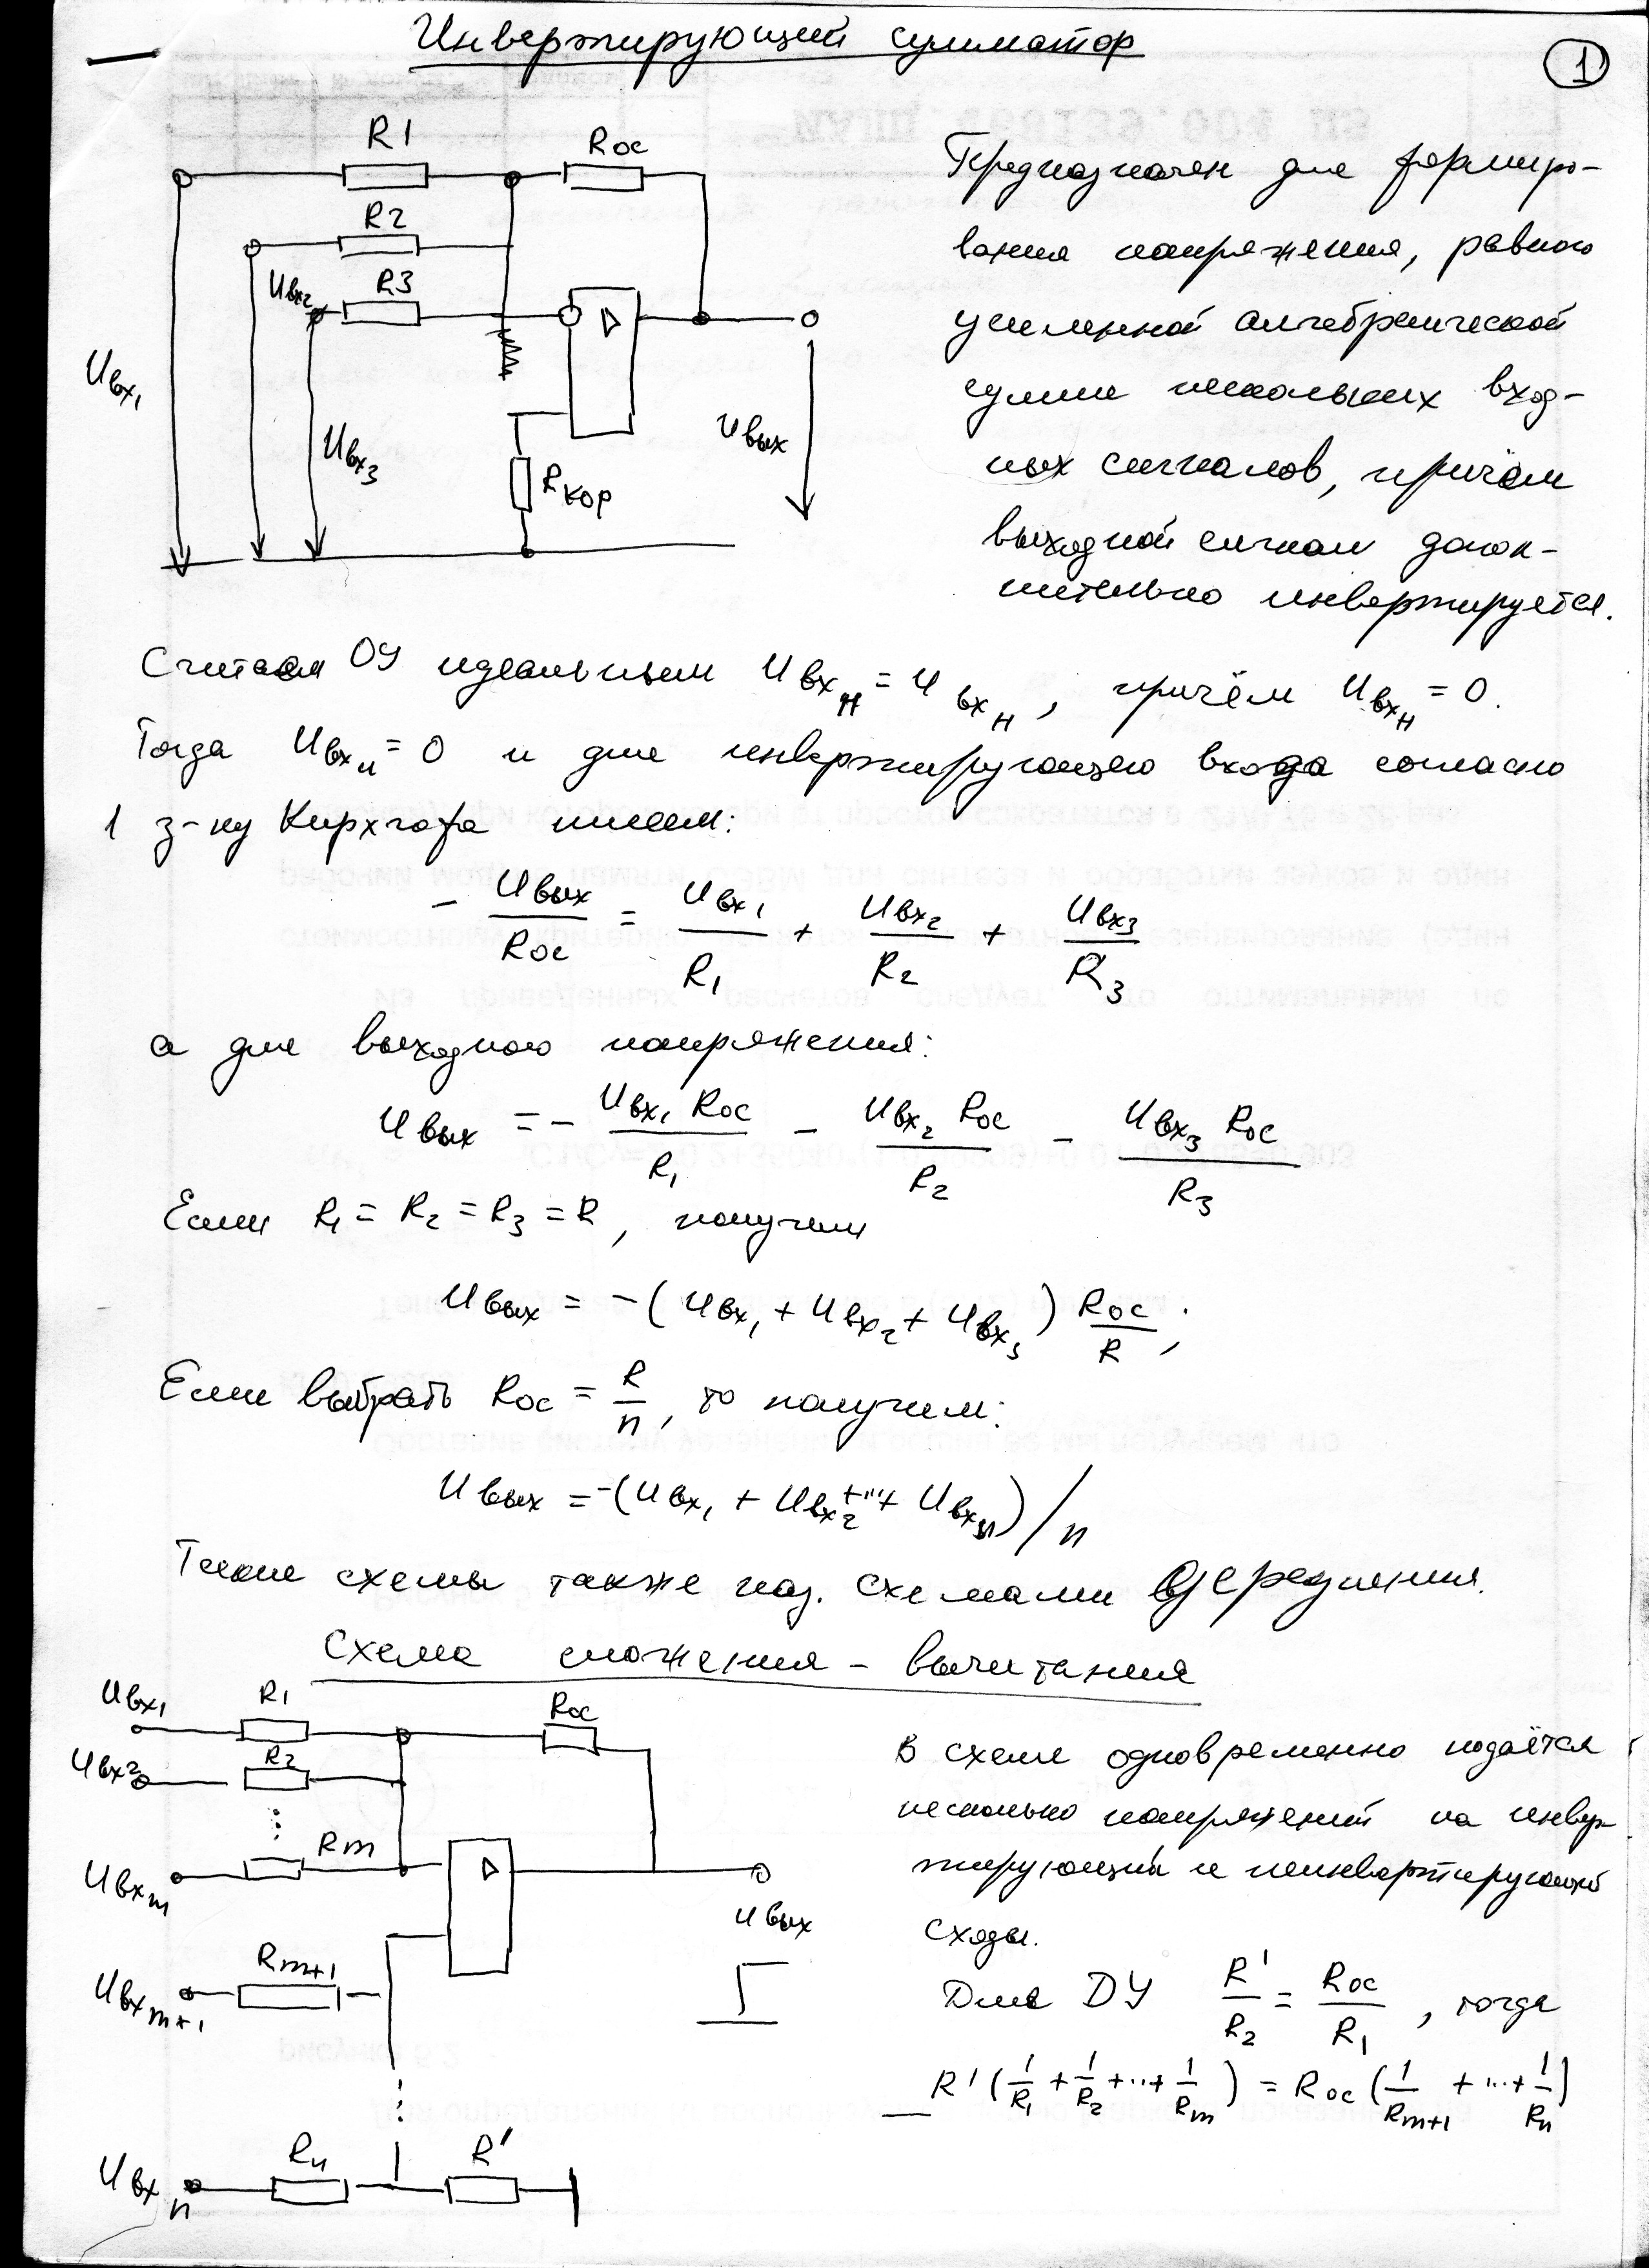 Инвертирующий сумматор
1
R1
Rос
R2
Uвх2
R3
Uвх1
Uвх3
Rкор
Uвых
Предназначен для формиро-
вания напряжения, равного
усиленной алгебраической
сумме нескольких вход-
ных сигналов, причём
выходной сигнал допол-
нительно инвертируется.
Считая ОУ идеальным Uвхн = Uвхн, причём Uвхн = 0.
Тогда Uвхи = 0 и для инвертирующего входа согласно
1 з-ну Кирхгофа имеем:
- Uвых/Rос = Uвх1/R1 + Uвх2/R2 + Uвх3/R3
а для выходного напряжения:
Uвых = - Uвх1 Rос/R1 - Uвх2 Rос/R2 - Uвх3 Rос/R3
Если R1 = R2 = R3 = R, получим
Uвых = -(Uвх1 + Uвх2 + Uвх3) Rос/R;
Если выбрать Rос = R/n, то получим:
Uвых = -(Uвх1 + Uвх2 +...+ Uвхn)/n
Такие схемы также наз. схемами усреднения.
Схема сложения - вычитания
Uвх1
R1
Rос
Uвх2
R2
Uвхm
Rm
Uвых
Uвхm+1
Rm+1
Uвхn
Rn
R'
В схеме одновременно подаётся
несколько напряжений на инвер-
тирующий и неинвертирующий
сходы.
Для ДУ R'/R2 = Rос/R1, тогда
R'(1/R1 + 1/R2 +...+ 1/Rm) = Rос(1/Rm+1 +...+ 1/Rn)